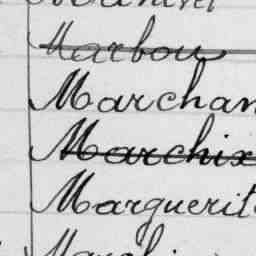 Marbou
Marchan
Marchix
Marguerit